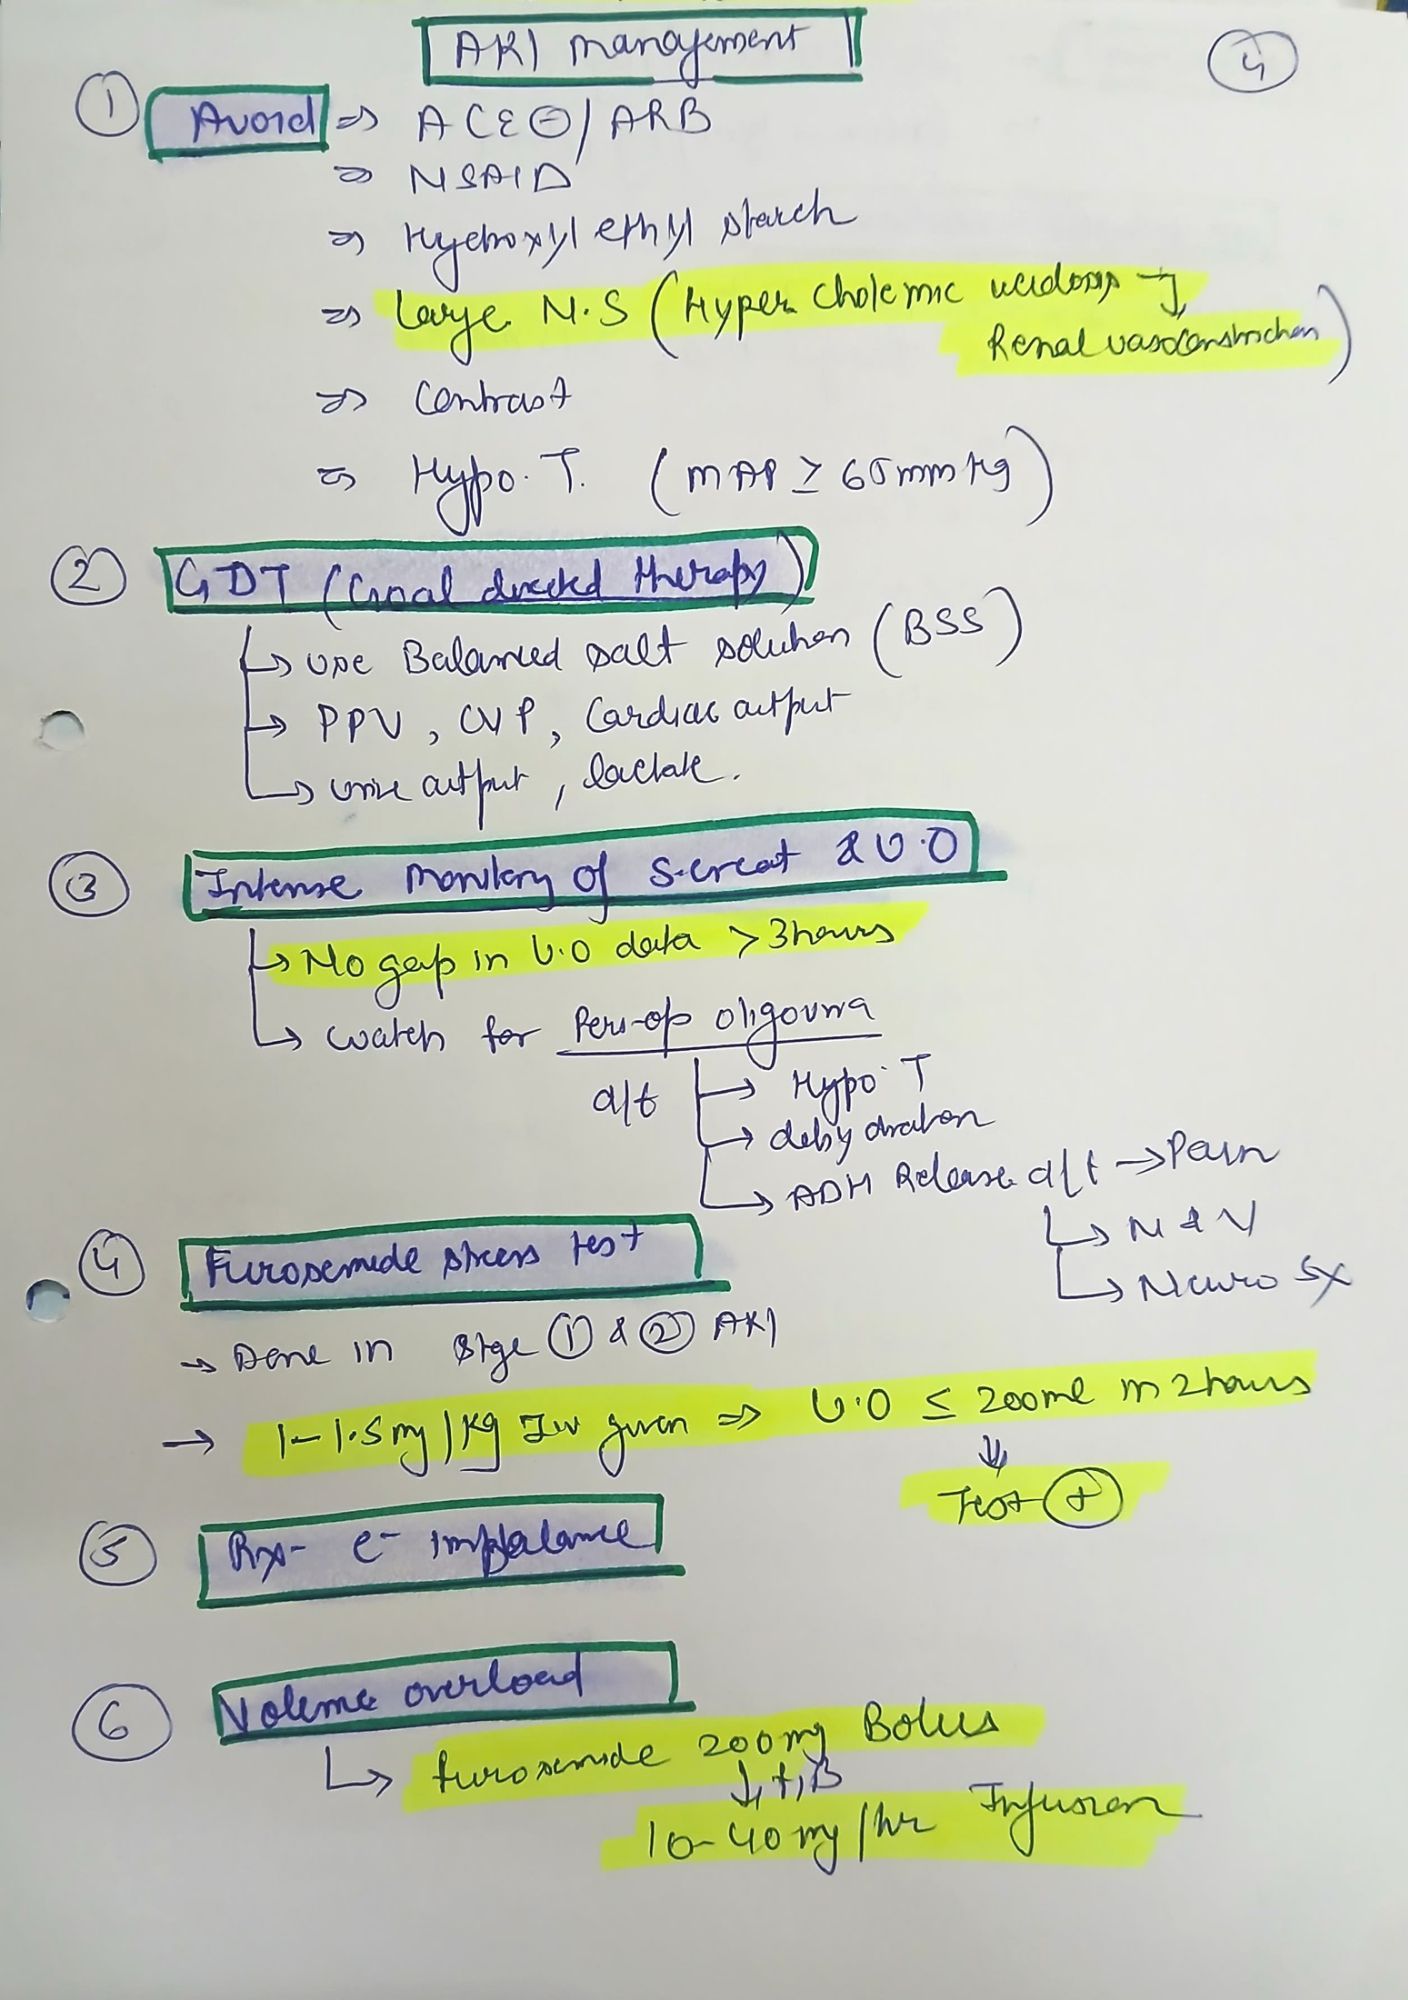 AKI management
4
① Avoid ⇒ ACE⊖/ARB
⇒ NSAID
⇒ Hydroxyl ethyl starch
⇒ Large N.S (Hyper Cholemic acidosis →
Renal vasoconstriction)
⇒ Contrast
⇒ Hypo.T. (MAP ≥ 65mmHg)
② GDT (Goal directed therapy)
↳ use Balanced salt solution (BSS)
→ PPV, CVP, Cardiac output
↳ urine output, lactate.
③ Intense monitory of S.creat & U.O
↳ No gap in U.O data > 3hours
↳ watch for Peri-op oligouria
d/t → Hypo.T
→ dehydration
↳ ADH Release d/t → Pain
↳ N & V
↳ Neuro Sx
④ Furosemide stress test
→ Done in Stge ① & ② AKI
→ 1-1.5mg/kg Iv given ⇒ U.O ≤ 200ml in 2hours
⇓
Test ⊕
⑤ Rx- e- imbalance
⑥ Volume overload
↳ furosemide 200mg Bolus
↓ f/B
10-40mg/hr Infusion